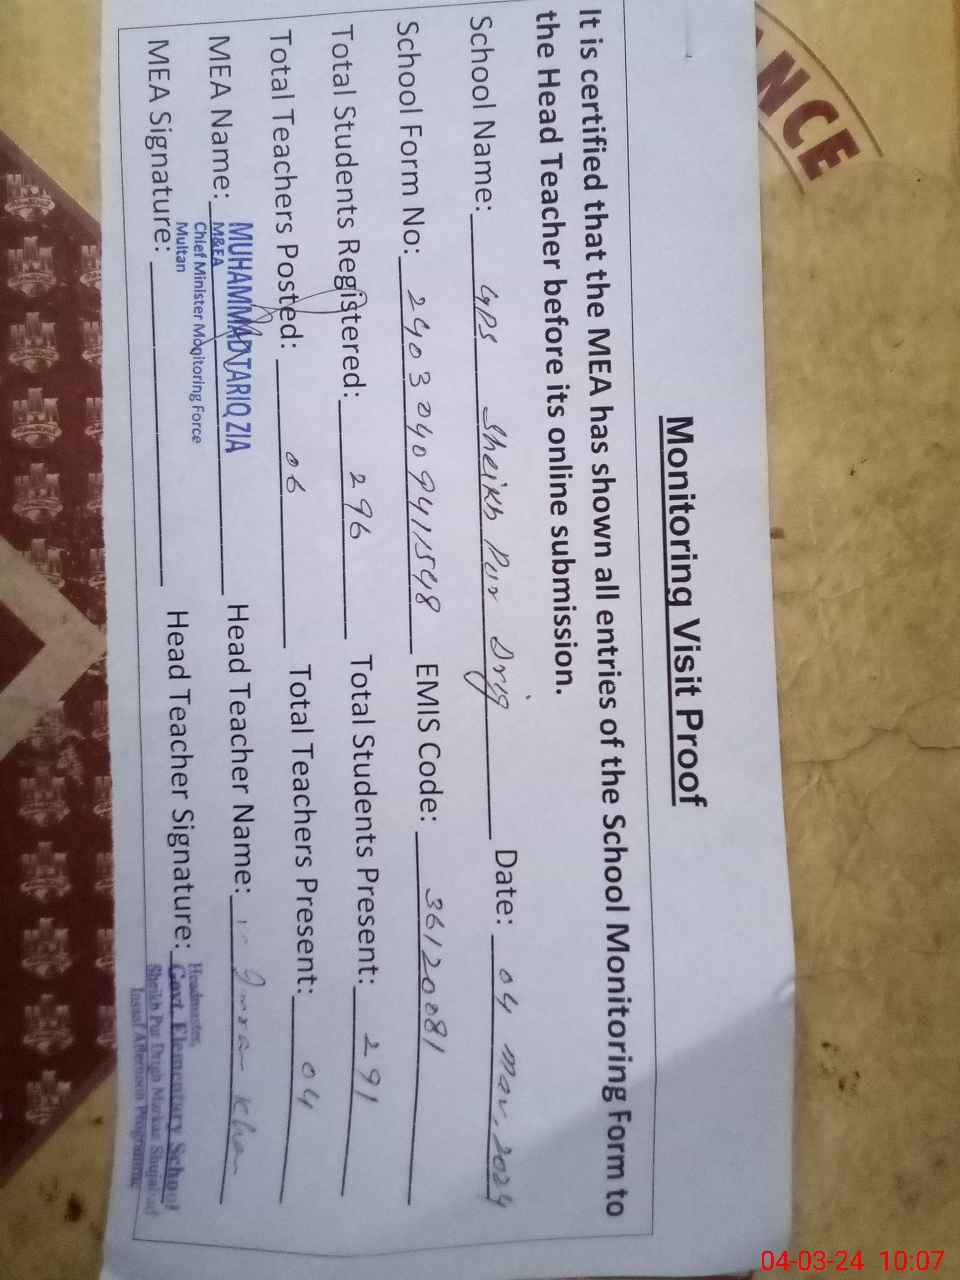 Monitoring Visit Proof
It is certified that the MEA has shown all entries of the School Monitoring Form to
the Head Teacher before its online submission.
School Name: GPS Sheikh Pur Drig Date: 04 Mar, 2024
School Form No: 24030409411548 EMIS Code: 36120081
Total Students Registered: 296 Total Students Present: 291
Total Teachers Posted: 06 Total Teachers Present: 04
MEA Name: MUHAMMAD TARIQ ZIA Head Teacher Name: Imran Khan
M&EA
Chief Minister Monitoring Force
Multan
MEA Signature: Head Teacher Signature:
Headmaster,
Govt. Elementary School
Sheikh Pur Drigh Markaz Shujabad
Insaf Afternoon Programme
ANCE
04-03-24 10:07